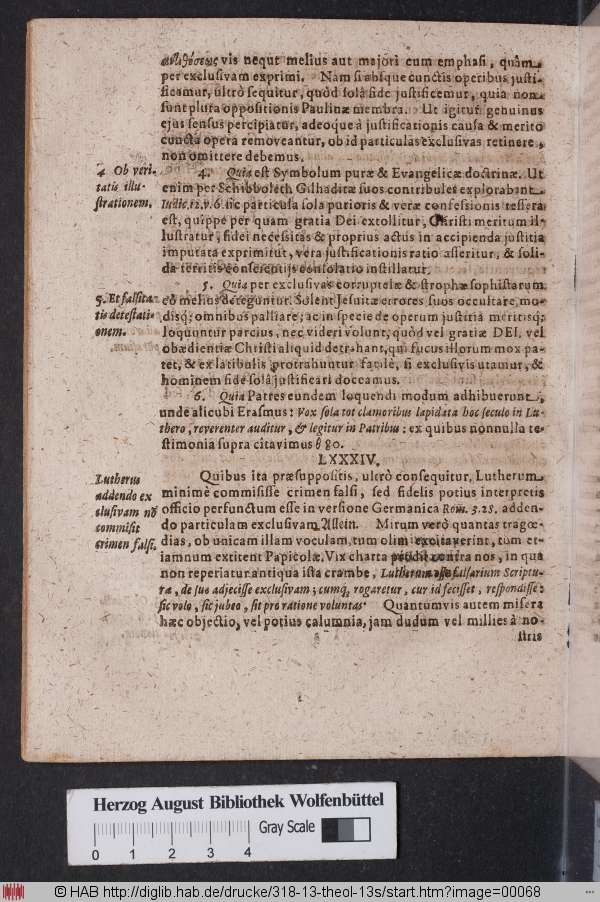 ἀντιθέσεως vis nequt melius aut majori cum emphasi, quàm
per exclusivam exprimi. Nam si absque cunctis operibus justi-
ficamur, ultrò sequitur, quòd solâ fide justificemur, quia non
sunt plura oppositionis Paulinæ membra. Ut igitur genuinus
ejus sensus percipiatur, adeoque à justificationis causa & merito
cuncta opera removeantur, ob id particulas exclusivas retinere,
non omittere debemus.
4 Ob veri-
tatis illu-
strationem.
4. Quia est Symbolum puræ & Evangelicæ doctrinæ. Ut
enim per Schibboleth Gilhaditæ suos contribules explorabant
Iudic. 12. v. 6. sic particula sola purioris & veræ confessionis tessera
est, quippe per quam gratia Dei extollitur, Christi meritum il-
lustratur, fidei necessitas & proprius actus in accipienda justitia
imputata exprimitur, vera justificationis ratio asseritur, & soli-
da territis conscientijs consolatio instillatur.
5. Et falsita-
tis detestati-
onem.
5. Quia per exclusivas corruptelæ & strophæ sophistarum
eò melius deteguntur. Solent Jesuitæ errores suos occultare, mo-
disq; omnibus palliare; ac in specie de operum justitia meritisq;
loquuntur parcius, nec videri volunt, quòd vel gratiæ DEI, vel
obædientiæ Christi aliquid detrahant, qui fucus illorum mox pa-
tet, & ex latibulis protrahuntur facilè, si exclusivis utamur, &
hominem fide solâ justificari doceamus.
6. Quia Patres eundem loquendi modum adhibuerunt,
unde alicubi Erasmus: Vox sola tot clamoribus lapidata hoc seculo in Lu-
thero, reverenter auditur, & legitur in Patribus: ex quibus nonnulla te-
stimonia supra citavimus § 80.
LXXXIV.
Lutherus
addendo ex
clusivam nō
commisit
crimen falsi.
Quibus ita præsuppositis, ultrò consequitur, Lutherum
minimè commisisse crimen falsi, sed fidelis potius interpretis
officio perfunctum esse in versione Germanica Rom. 3. 25. adden-
do particulam exclusivam Allein. Mirum verò quantas tragœ-
dias, ob unicam illam voculam, tum olim excitaverint, tum et-
iamnum extitent Papicolæ. Vix charta prodit contra nos, in qua
non reperiatur antiqua ista crambe, Lutherum esse falsarium Scriptu-
ræ, de suo adjecisse exclusivam; cumq; rogaretur, cur id fecisset, respondisse:
sic volo, sic jubeo, sit pro ratione voluntas. Quantumvis autem misera
hæc objectio, vel potius calumnia, jam dudum vel millies à no-
stris
Herzog August Bibliothek Wolfenbüttel
Gray Scale
0 1 2 3 4
© HAB http://diglib.hab.de/drucke/318-13-theol-13s/start.htm?image=00068